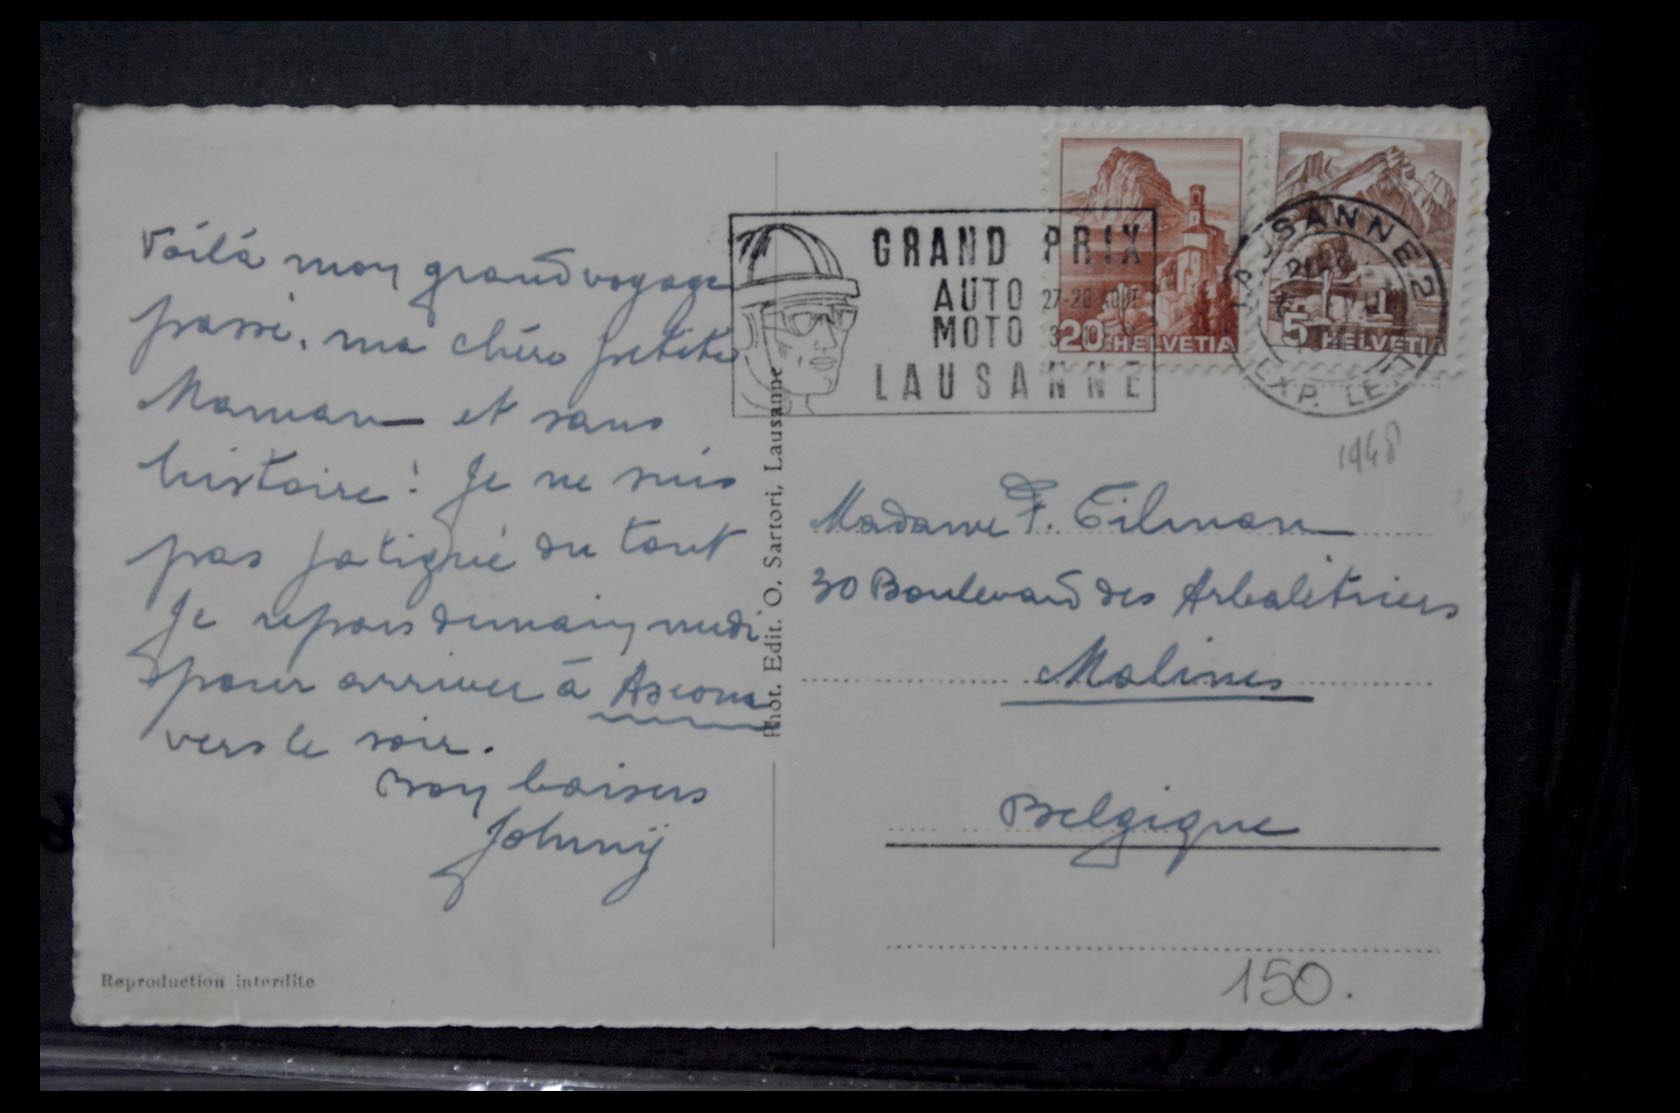 Voilà mon grand voyage
passé, ma chère petite
Maman et sans
histoire! Je ne suis
pas fatigué du tout
Je repars demain midi
pour arriver à Ascona
vers le soir.
Bons baisers
Johnny
Reproduction interdite
Phot. Edit. O. Sartori, Lausanne
GRAND PRIX
AUTO 27-28 AOUT
MOTO
LAUSANNE
20 HELVETIA
5 HELVETIA
LAUSANNE 2
EXP. LETT.
1948
Madame F. Tilman
30 Boulevard des Arbalétriers
Malines
Belgique
150.